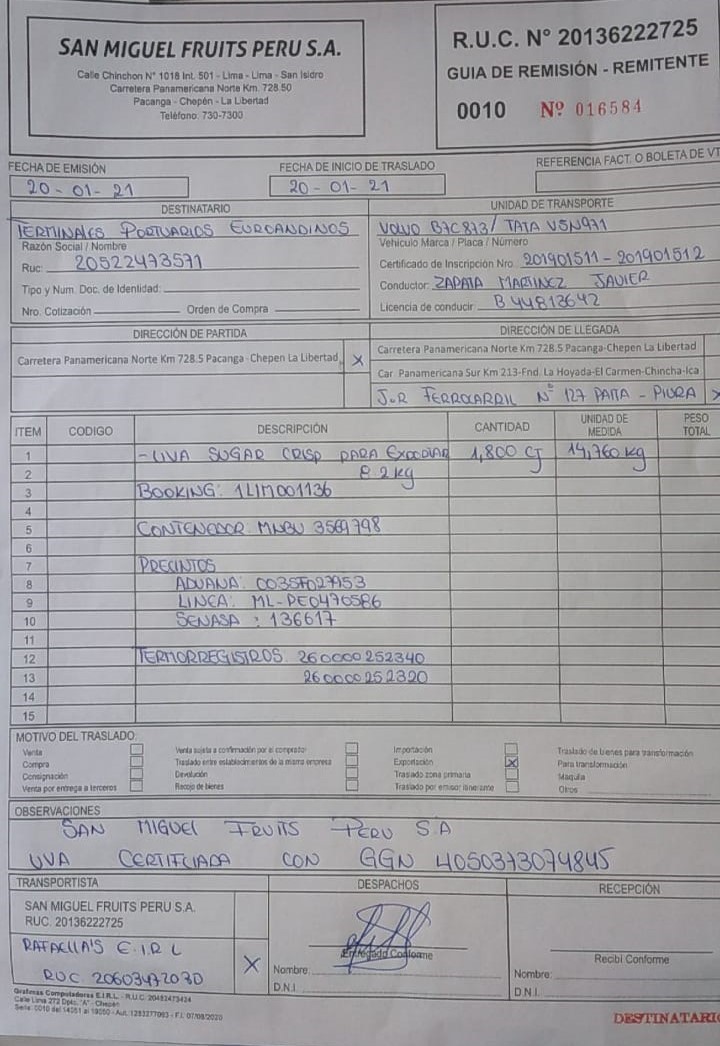 SAN MIGUEL FRUITS PERU S.A.
Calle Chinchon N° 1018 Int. 501 - Lima - Lima - San Isidro
Carretera Panamericana Norte Km. 728.50
Pacanga - Chepén - La Libertad
Teléfono: 730-7300
R.U.C. N° 20136222725
GUIA DE REMISIÓN - REMITENTE
0010 Nº 016584
FECHA DE EMISIÓN
20-01-21
FECHA DE INICIO DE TRASLADO
20-01-21
REFERENCIA FACT. O BOLETA DE VT
DESTINATARIO
TERMINALES PORTUARIOS EUROANDINOS
Razón Social / Nombre
Ruc: 20522473571
Tipo y Num. Doc. de Identidad:
Nro. Cotización Orden de Compra
UNIDAD DE TRANSPORTE
VOLVO B7C873/ TATA V5N971
Vehiculo Marca / Placa / Número
Certificado de Inscripción Nro. 201901511-201901512
Conductor: ZAPATA MARTINEZ JAVIER
Licencia de conducir: B 44813642
DIRECCIÓN DE PARTIDA
Carretera Panamericana Norte Km 728.5 Pacanga - Chepen La Libertad X
DIRECCIÓN DE LLEGADA
Carretera Panamericana Norte Km 728.5 Pacanga-Chepen La Libertad
Car. Panamericana Sur Km 213-Fnd. La Hoyada-El Carmen-Chincha-Ica
JºR FERROCARRIL Nº 127 PAITA - PIURA X
ITEM CODIGO DESCRIPCIÓN CANTIDAD UNIDAD DE MEDIDA PESO TOTAL
1 - UVA SUGAR CRISP PARA 1,800 CJ 14,760 kg
2 8.2 kg
3 BOOKING: 1LIM001136
4
5 CONTENEDOR: MNBU 3569798
6
7 PRECINTOS
8 ADUANA: 0035F027953
9 LINEA: ML-PE0470586
10 SENASA : 136617
11
12 TERMORREGISTROS 260000252340
13 260000252320
14
15
MOTIVO DEL TRASLADO:
Venta
Compra
Consignación
Venta por entrega a terceros
Venta sujeta a confirmación por el comprador
Traslado entre establecimientos de la misma empresa
Devolución
Recojo de bienes
Importación
Exportación X
Traslado zona primaria
Traslado por emisor itinerante
Traslado de bienes para transformación
Para transformación
Maquila
Otros
OBSERVACIONES
SAN MIGUEL FRUITS PERU S.A
UVA CERTIFCIADA CON GGN 4050373074845
TRANSPORTISTA
SAN MIGUEL FRUITS PERU S.A.
RUC. 20136222725
RAFAELLA'S E.I.R.L
RUC 20603472030 X
DESPACHOS
Entregado Conforme
Nombre:
D.N.I.
RECEPCIÓN
Recibi Conforme
Nombre:
D.N.I.
Graficas Computadoras E.I.R.L. - R.U.C. 20482473424
Calle Lima 272 Dpto. "A" - Chepen
Serie: 0010 del 14051 al 19050 - Aut. 1283277063 - F.I. 07/08/2020
DESTINATARIO